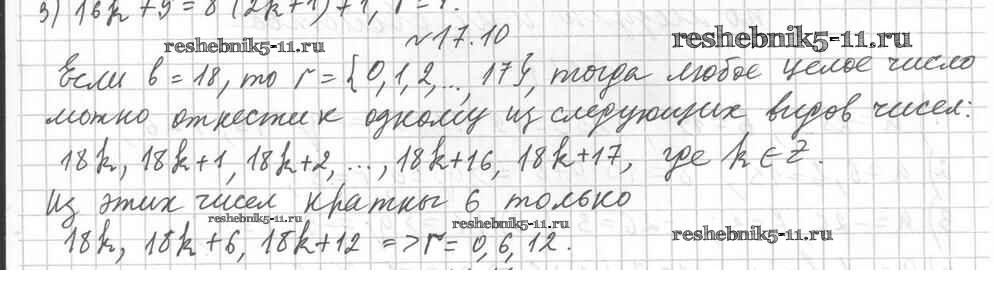 3) 16k + 9 = 8 (2k+1) + 1, r = 1.
№17.10
reshebnik5-11.ru reshebnik5-11.ru
Если b = 18, то r = {0, 1, 2, ..., 17}, тогда любое целое число
можно отнести к одному из следующих видов чисел:
18k, 18k+1, 18k+2, ..., 18k+16, 18k+17, где k ∈ Z.
Из этих чисел кратны 6 только
reshebnik5-11.ru reshebnik5-11.ru reshebnik5-11.ru
18k, 18k+6, 18k+12 => r = 0, 6, 12.